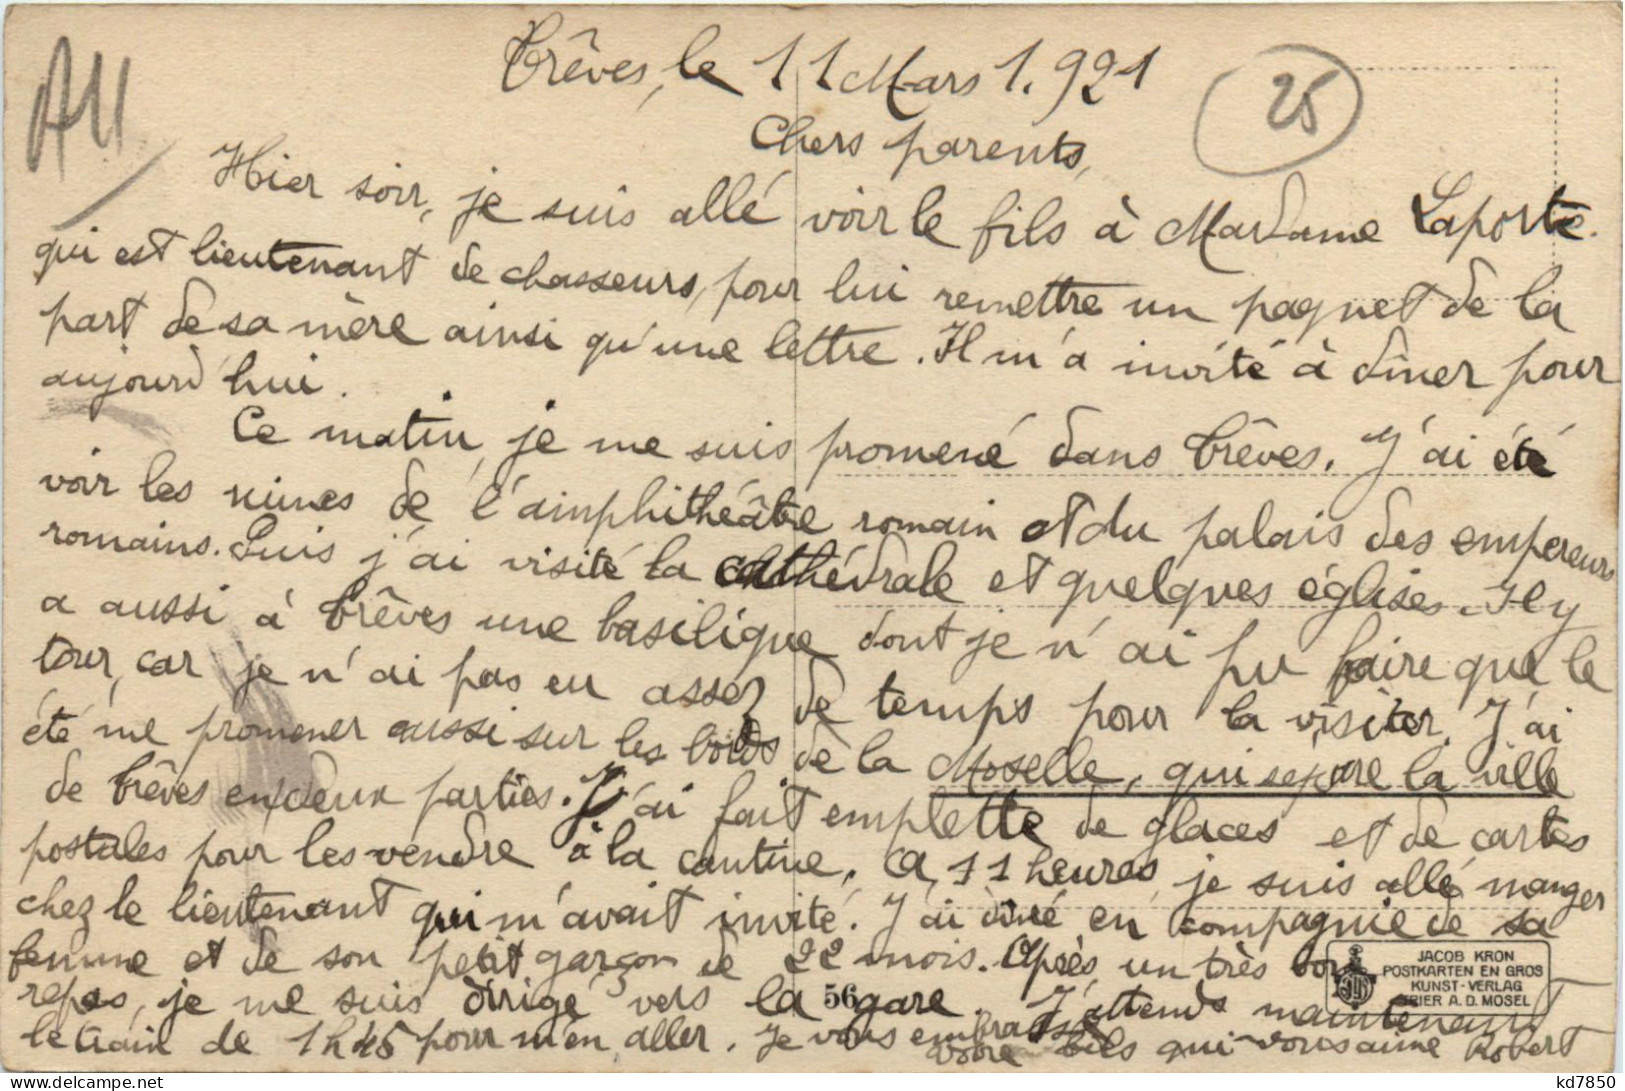 Trêves, le 11 Mars 1.921
All
25
Chers parents,
Hier soir, je suis allé voir le fils à Madame Laporte.
qui est lieutenant de chasseurs, pour lui remettre un paquet de la
part de sa mère ainsi qu'une lettre. Il m'a invité à dîner pour
aujourd'hui.
Ce matin, je me suis promené dans Trêves. J'ai été
voir les ruines de l'amphithéâtre romain et du palais des empereurs
romains. Puis j'ai visité la cathédrale et quelques églises. Il y
a aussi à Trêves une basilique dont je n'ai pu faire que le
tour, car je n'ai pas eu assez de temps pour la visiter. J'ai
été me promener aussi sur les bords de la Moselle, qui sépare la ville
de Trêves en deux parties. J'ai fait emplette de glaces et de cartes
postales pour les vendre à la cantine. A 11 heures, je suis allé manger
chez le lieutenant qui m'avait invité. J'ai dîné en compagnie de sa
femme et de son petit garçon de 22 mois. Après un très bon
repas, je me suis dirigé vers la gare. J'attends maintenant
le train de 1h45 pour m'en aller. Je vous embrasse
votre fils qui vous aime Robert
56
JACOB KRON
POSTKARTEN EN GROS
KUNST-VERLAG
TRIER A.D. MOSEL
kd7850